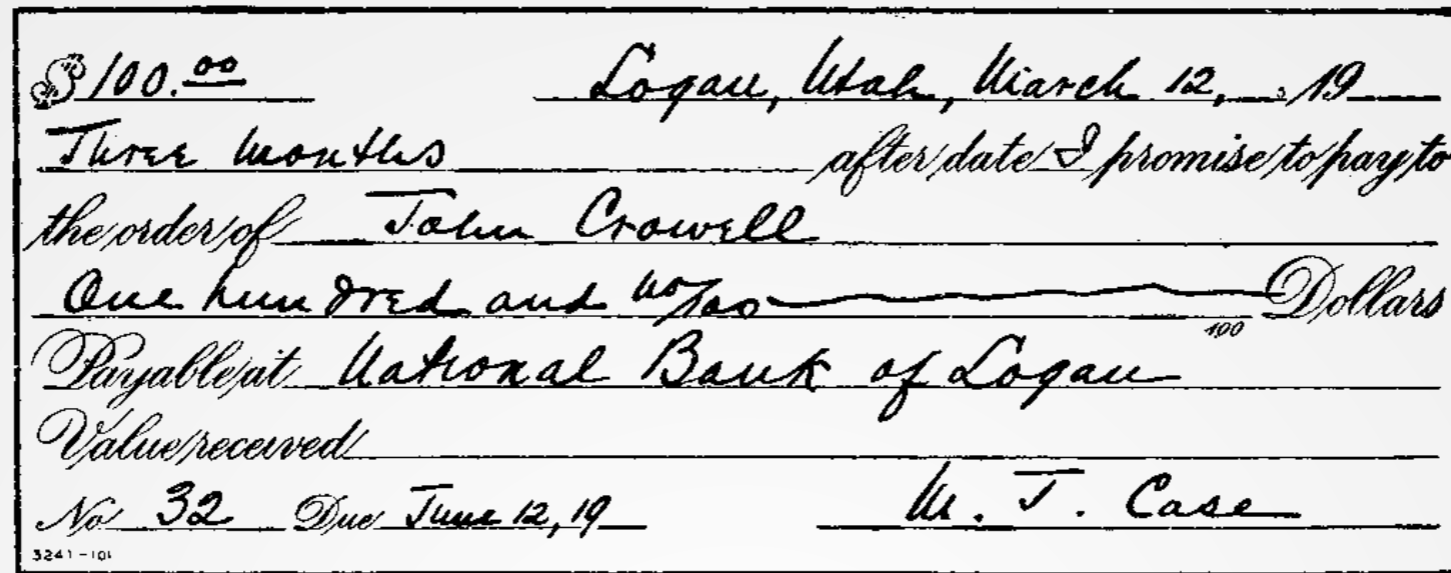 $100.00 Logan, Utah, March 12, 19
Three months after date I promise to pay to
the order of John Crowell
One hundred and no/100 Dollars
100
Payable at National Bank of Logan
Value received
No 32 Due June 12, 19 M. T. Case
3241-101